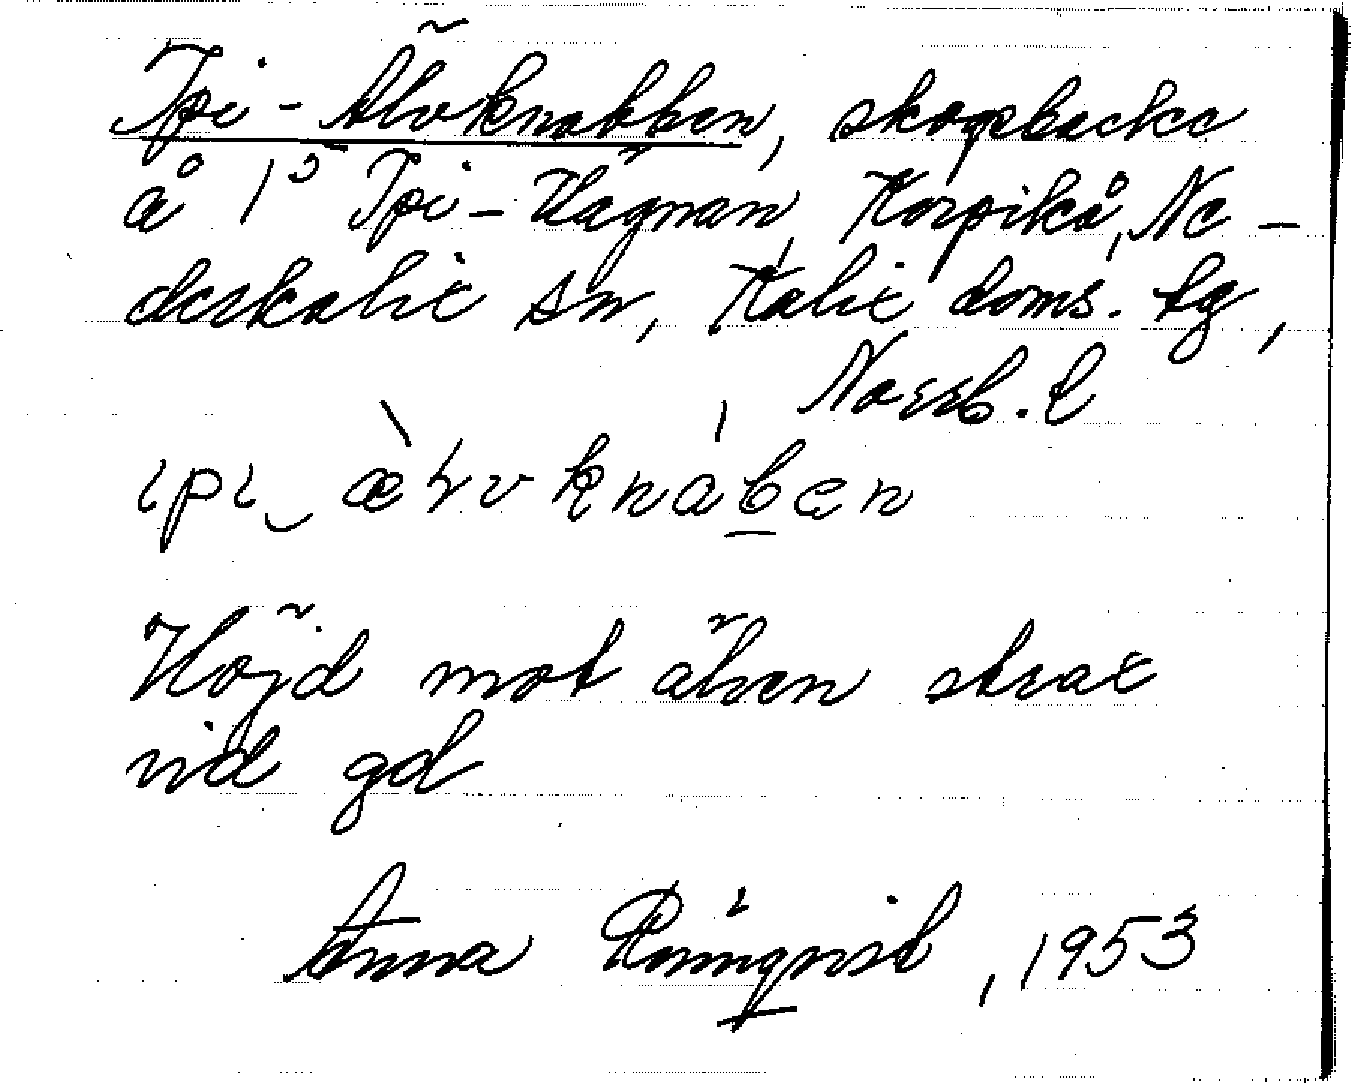 Ipi-Älvknabben, skogsbacke
å 1⁵ Ipi-Hägnan, Korpikå, Ne-
derkalix sn, Kalix doms. tg,
Norrb. l
ipi‿ æ̀ɽvknában
Höjd mot älven strax
vid gd
Anna Rönnqvist, 1953